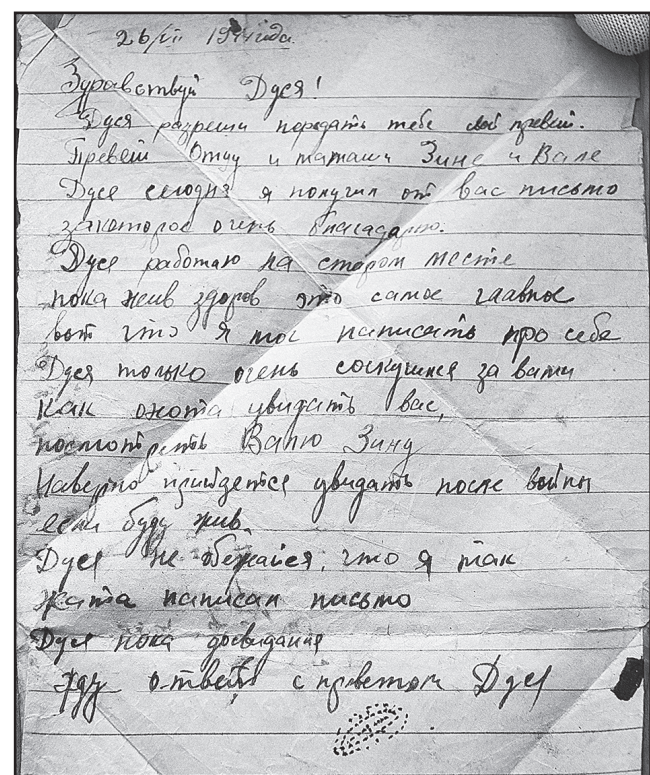 26/VII 1944 года.
Здравствуй Дуся!
Дуся разреши передать тебе свой привет.
Привет Отцу и мамаши Зине и Вале
Дуся сегодня я получил от вас письмо
закоторое очень благадарю.
Дуся работаю на старом месте
пока жив здоров это самое главное
вот что я мог написать про себе
Дуся только очень соскушился за вами
Как охота увидать вас,
посмотреть Валю Зину
Наверно прийдется увидать после войны
если буду жив.
Дуся не обежайся, что я так
написал письмо
Дуся пока досвидания
Жду ответ с приветом Дуся